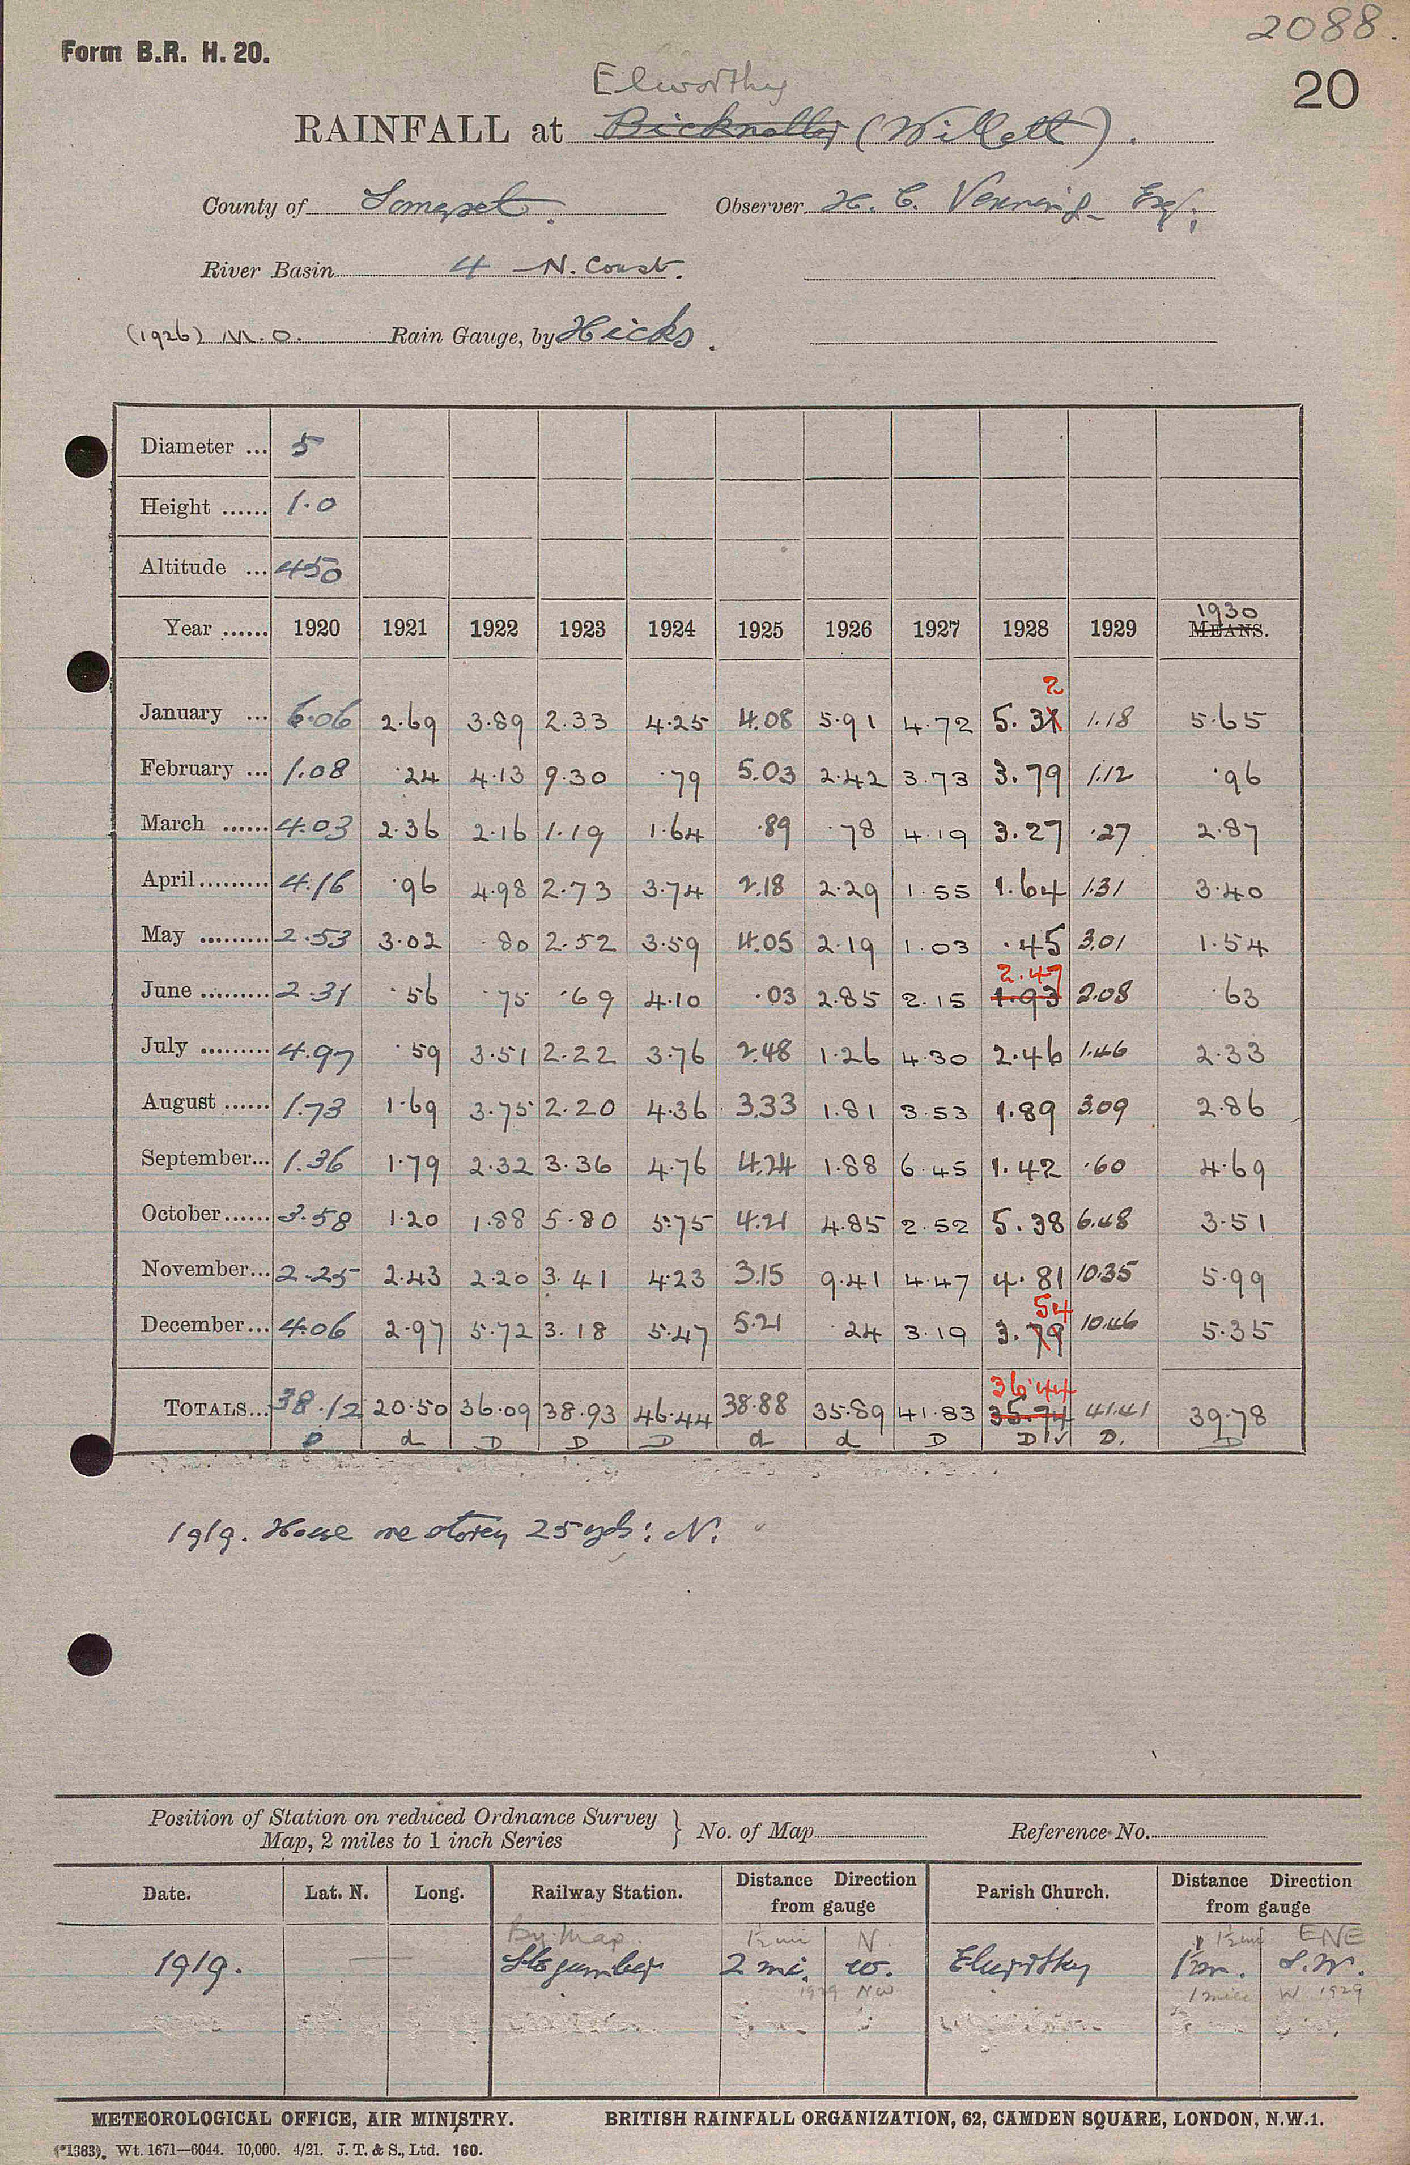 2088.
Form B.R. H. 20.
20
Elworthy
RAINFALL at Bicknoller (Willett).
County of Somerset. Observer H. C. Venning Esq.
River Basin 4 N. Coast.
(1926) M.O. Rain Gauge, by Hicks.
Diameter ... 5
Height ...... 1.0
Altitude ... 450
1930
Year ...... 1920 1921 1922 1923 1924 1925 1926 1927 1928 1929 MEANS.
2
January ... 6.06 2.69 3.89 2.33 4.25 4.08 5.91 4.72 5.31 1.18 5.65
February ... 1.08 .24 4.13 9.30 .79 5.03 2.42 3.73 3.79 1.12 .96
March ...... 4.03 2.36 2.16 1.19 1.64 .89 .78 4.19 3.27 .27 2.87
April ......... 4.16 .96 4.98 2.73 3.74 2.18 2.29 1.55 1.64 1.31 3.40
May ......... 2.53 3.02 .80 2.52 3.59 4.05 2.19 1.03 .45 3.01 1.54
2.47
June ......... 2.31 .56 .75 .69 4.10 .03 2.85 2.15 1.93 2.08 .63
July ......... 4.97 .59 3.51 2.22 3.76 2.48 1.26 4.30 2.46 1.46 2.33
August ...... 1.73 1.69 3.75 2.20 4.36 3.33 1.81 3.53 1.89 3.09 2.86
September... 1.36 1.79 2.32 3.36 4.76 4.24 1.88 6.45 1.42 .60 4.69
October...... 3.58 1.20 1.88 5.80 5.75 4.21 4.85 2.52 5.38 6.48 3.51
November... 2.25 2.43 2.20 3.41 4.23 3.15 9.41 4.47 4.81 10.35 5.99
54
December... 4.06 2.97 5.72 3.18 5.47 5.21 .24 3.19 3.79 10.46 5.35
36.44
TOTALS... 38.12 20.50 36.09 38.93 46.44 38.88 35.89 41.83 35.74 41.41 39.78
D d D D D d d D D ✓ D. D
1919. House one storey 25 yds: N.
Position of Station on reduced Ordnance Survey
Map, 2 miles to 1 inch Series } No. of Map Reference No.
Date. Lat. N. Long. Railway Station. Distance Direction from gauge Parish Church. Distance Direction from gauge
By Map 1½ mi N 1½ mi ENE
1919. — Stogumber 2 mi. W. Elworthy 1 m. S.W.
1929 NW 1 mile W 1929
METEOROLOGICAL OFFICE, AIR MINISTRY. BRITISH RAINFALL ORGANIZATION, 62, CAMDEN SQUARE, LONDON, N.W.1.
(*1383). Wt. 1671—6044. 10,000. 4/21. J. T. & S., Ltd. 160.